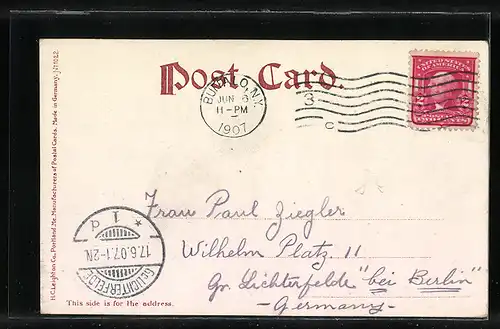 Post Card.
BUFFALO, N.Y.
JUN 6
11-PM
1907
3
C
UNITED STATES
OF AMERICA
2 2
TWO CENTS
H.C. Leighton Co., Portland, Me. Manufacturers of Postal Cards. Made in Germany.
Frau Paul Ziegler
Wilhelm Platz. 11
Gr. Lichterfelde "bei Berlin"
- Germany -
* 1 d
17.6.07.1-2N.
GR. LICHTERFELDE
This side is for the address.